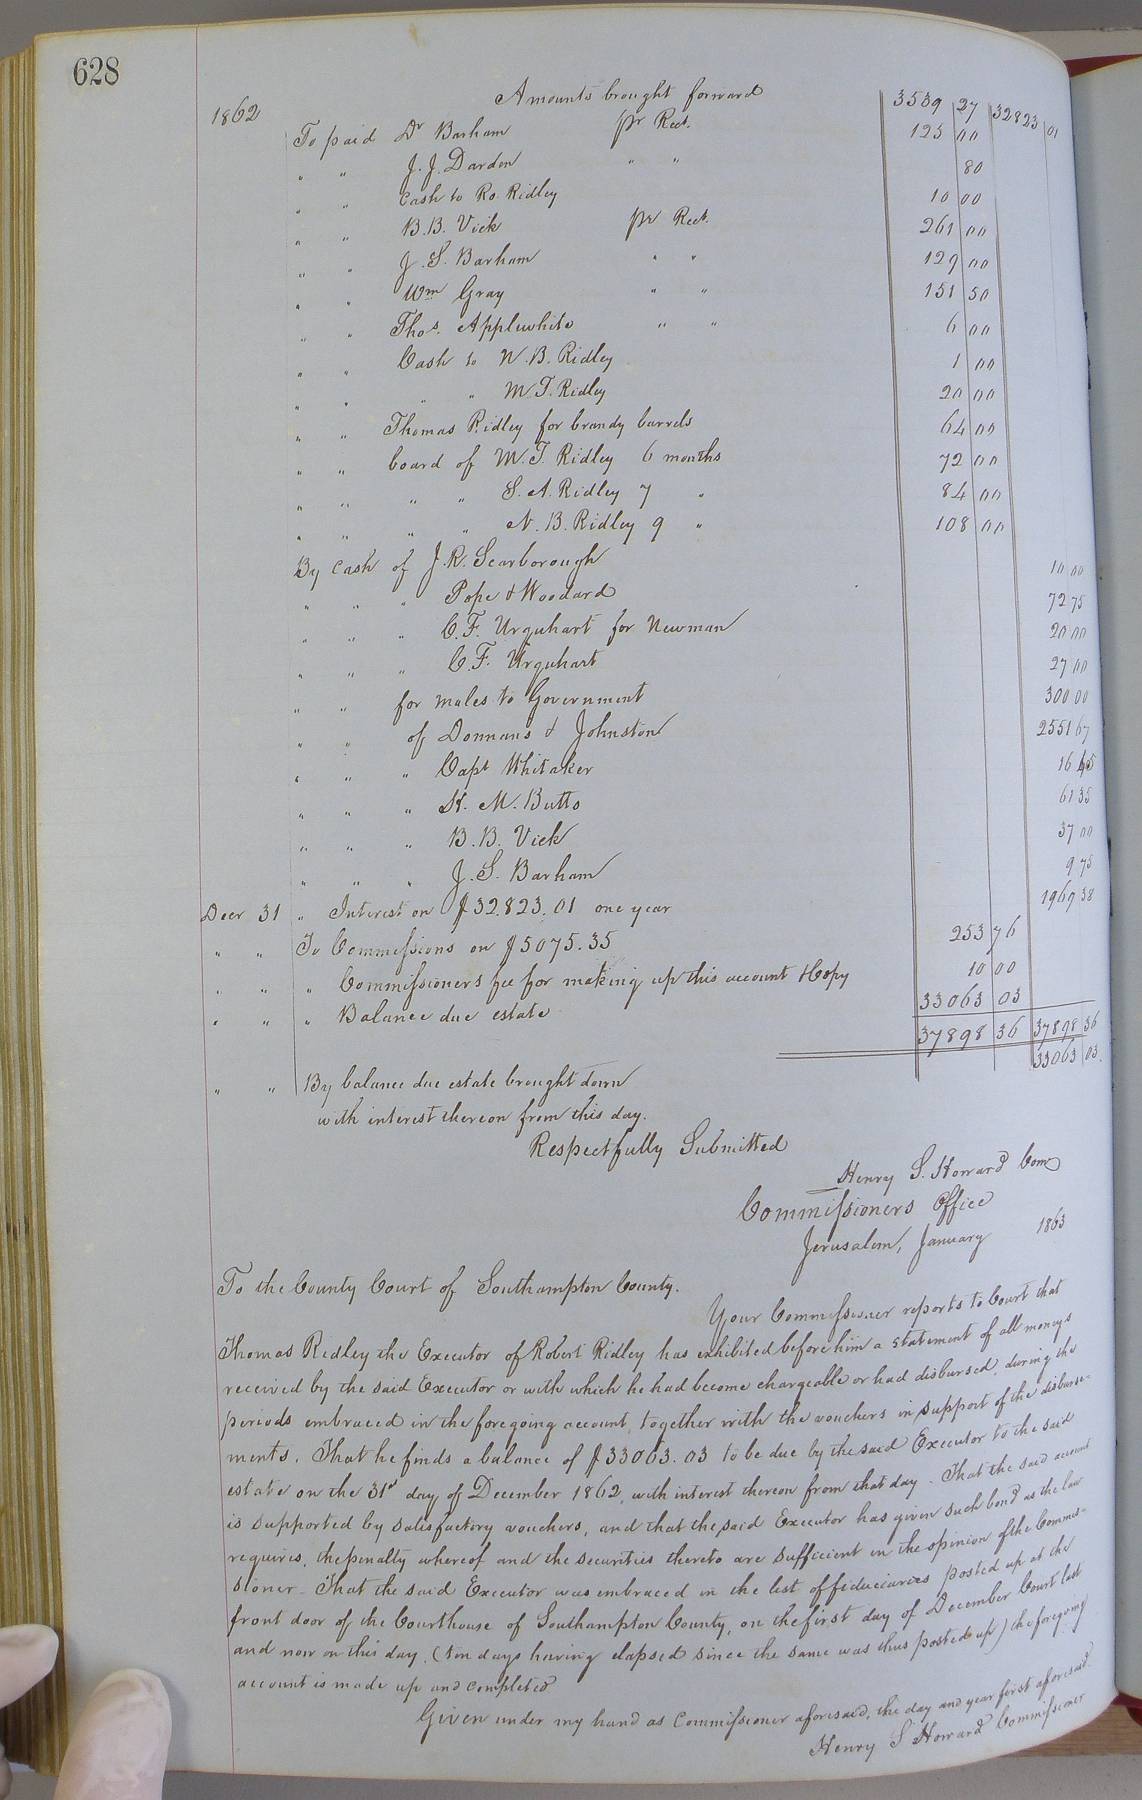 628
Amounts brought forward 3539 27 32823 01
1862 To paid Dr Barham pr Rect. 125 00
" " J. J. Darden " " 80
" " Cash to Ro. Ridley 10 00
" " B. B. Vick pr Rect. 261 00
" " J. S. Barham " " 129 00
" " Wm Gray " " 151 50
" " Thos. Applewhite " " 6 00
" " Cash to N. B. Ridley 1 00
" " " " M. T. Ridley 20 00
" " Thomas Ridley for brandy barrels 64 00
" " board of M. T. Ridley 6 months 72 00
" " " " S. A. Ridley 7 " 84 00
" " " " N. B. Ridley 9 " 108 00
By Cash of J. R. Scarborough 10 00
" " " Pope & Woodard 72 75
" " " C. F. Urquhart for Newman 20 00
" " " C. F. Urquhart 27 00
" " for mules to Government 300 00
" " of Donnans & Johnston 2551 67
" " " Capt Whitaker 16 45
" " " H. M. Butts 61 35
" " " B. B. Vick 37 00
" " " J. S. Barham 9 75
Decr 31 " Interest on $32.823.01 one year 1969 38
" " To Commissions on $5075.35 253 76
" " " Commissioners fee for making up this account & Copy 10 00
" " " Balance due estate 33063 03
37898 36 37898 36
" " By balance due estate brought down 33063 03
with interest thereon from this day.
Respectfully Submitted
Henry S. Howard Com
Commissioners Office
Jerusalem, January 1863
To the County Court of Southampton County.
Your Commissioner reports to Court that
Thomas Ridley the Executor of Robert Ridley has exhibited before him a statement of all moneys
received by the said Executor or with which he had become chargeable or had disbursed, during the
periods embraced in the foregoing account, together with the vouchers in support of the disburse-
ments. That he finds a balance of $33063.03 to be due by the said Executor to the said
estate on the 31st day of December 1862, with interest thereon from that day. That the said account
is supported by satisfactory vouchers, and that the said Executor has given such bond as the law
requires, the penalty whereof and the securities thereto are sufficient in the opinion of the Commis-
sioner. That the said Executor was embraced in the list of fiduciaries posted up at the
front door of the Courthouse of Southampton County, on the first day of December Court last
and now on this day, (ten days having elapsed since the same was thus posted up) the foregoing
account is made up and completed
Given under my hand as Commissioner aforesaid, the day and year first aforesaid.
Henry S Howard Commissioner